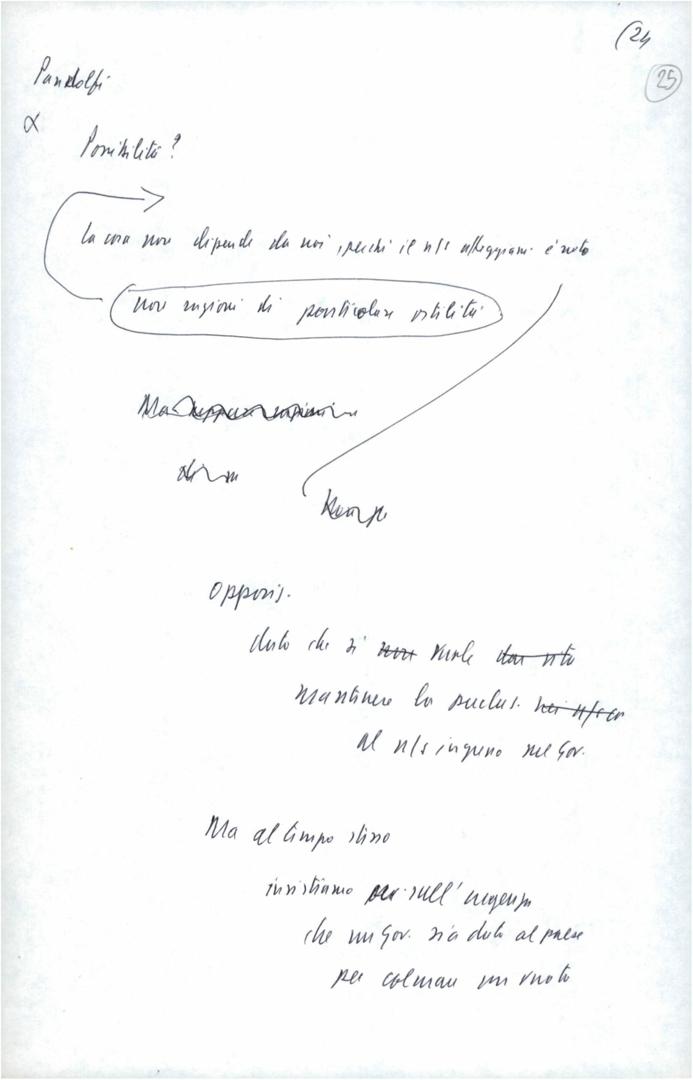 (24
25
Pandolfi
α
Possibilità?
la cosa non dipende da noi, perché il n/s atteggiam. è noto
non ragioni di particolare ostilità
Ma neppure
Opposiz.
dato che si non vuole dar vita
mantenere la preclus. nei n/s co
al n/s ingresso nel Gov.
Ma al tempo stesso
insistiamo sull'urgenza
che un Gov. sia dato al paese
per colmare un vuoto